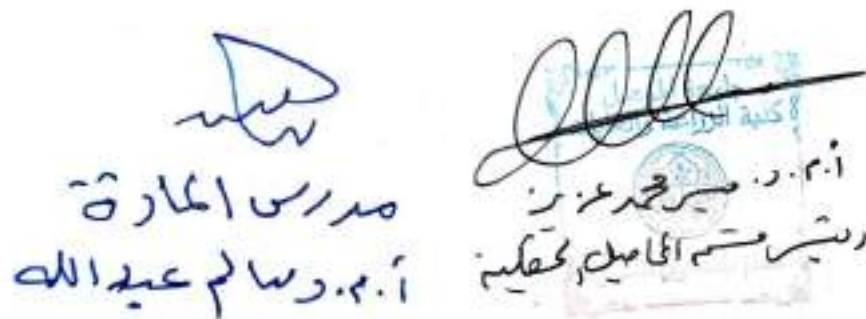 مدرس المادة
أ.م.د سالم عبدالله
كلية الزراعة
أ.م.د. محمد عزيز
رئيس قسم المحاصيل الحقلية